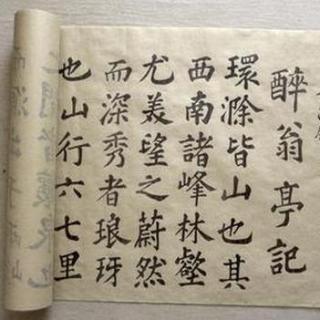 醉翁亭記
環滁皆山也其
西南諸峰林壑
尤美望之蔚然
而深秀者琅玡
也山行六七里